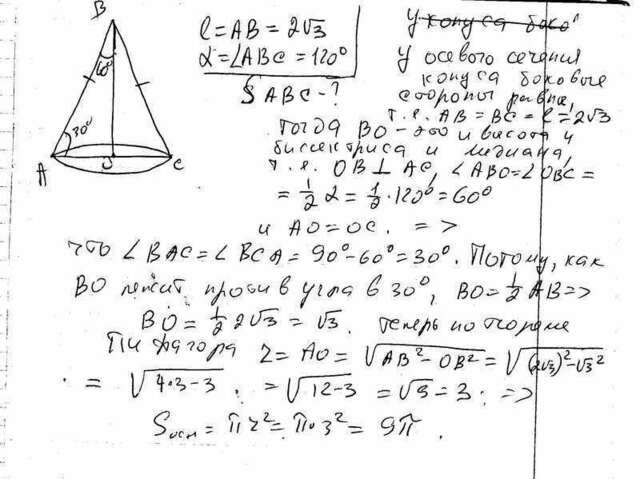 B
60°
30°
A
O
C
l = AB = 2√3
α = ∠ABC = 120°
S ABC - ?
У конуса боков
У осевого сечения
конуса боковые
стороны равны,
т.е. AB = BC = l = 2√3
Тогда BO - это и высота и
биссектриса и медиана,
т.е. OB ⊥ AC, ∠ABO = ∠OBC =
= 1/2 α = 1/2 · 120° = 60°
и AO = OC. =>
что ∠BAC = ∠BCA = 90° - 60° = 30°. Потому, как
BO лежит против угла в 30°, BO = 1/2 AB =>
BO = 1/2 2√3 = √3. теперь по теореме
Пифагора r = AO = √(AB² - OB²) = √((2√3)² - √3²)
= √(4·3 - 3) = √(12 - 3) = √9 = 3 =>
Sосн = πr² = π·3² = 9π.